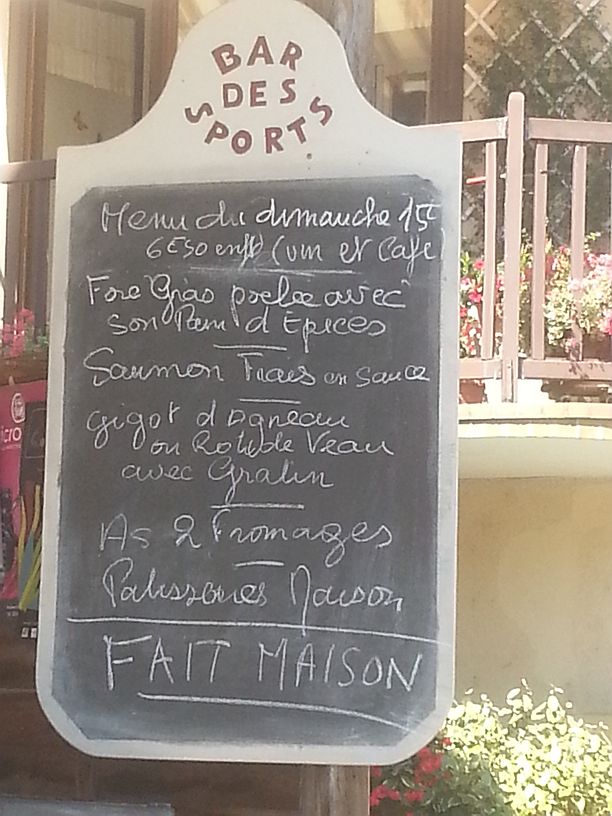 BAR
DES
SPORTS
Menu du dimanche 15€
6€50 enft (vin et Café)
Foie Gras poelée avec
son Pain d'Epices
Saumon Frais en sauce
Gigot d'Agneau
ou Roti de Veau
avec Gratin
As 2 Fromages
Patisseries Maison
FAIT MAISON
icro